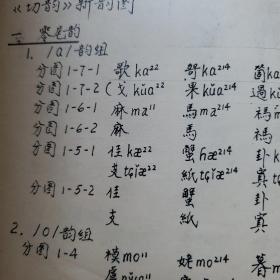 《切韵》新韵图
一 零尾韵
1. /a/ 韵组
分图1-7-1 歌ka²² 哿ka²¹⁴ 箇ka
分图1-7-2 (戈kŭa²² 果kŭa²¹⁴ 過kŭ
分图1-6-1 麻ma¹¹ 馬ma²¹⁴ 禡m
分图1-6-2 麻 馬 禡
分图1-5-1 佳kæ²² 蟹ɦæ²¹⁴ 卦k
支tɕĭæ²² 紙tɕĭæ²¹⁴ 寘
分图1-5-2 佳 蟹 卦
支 紙 寘
2. /o/ 韵组
分图1-4 模mo¹¹ 姥mo²¹⁴ 暮m